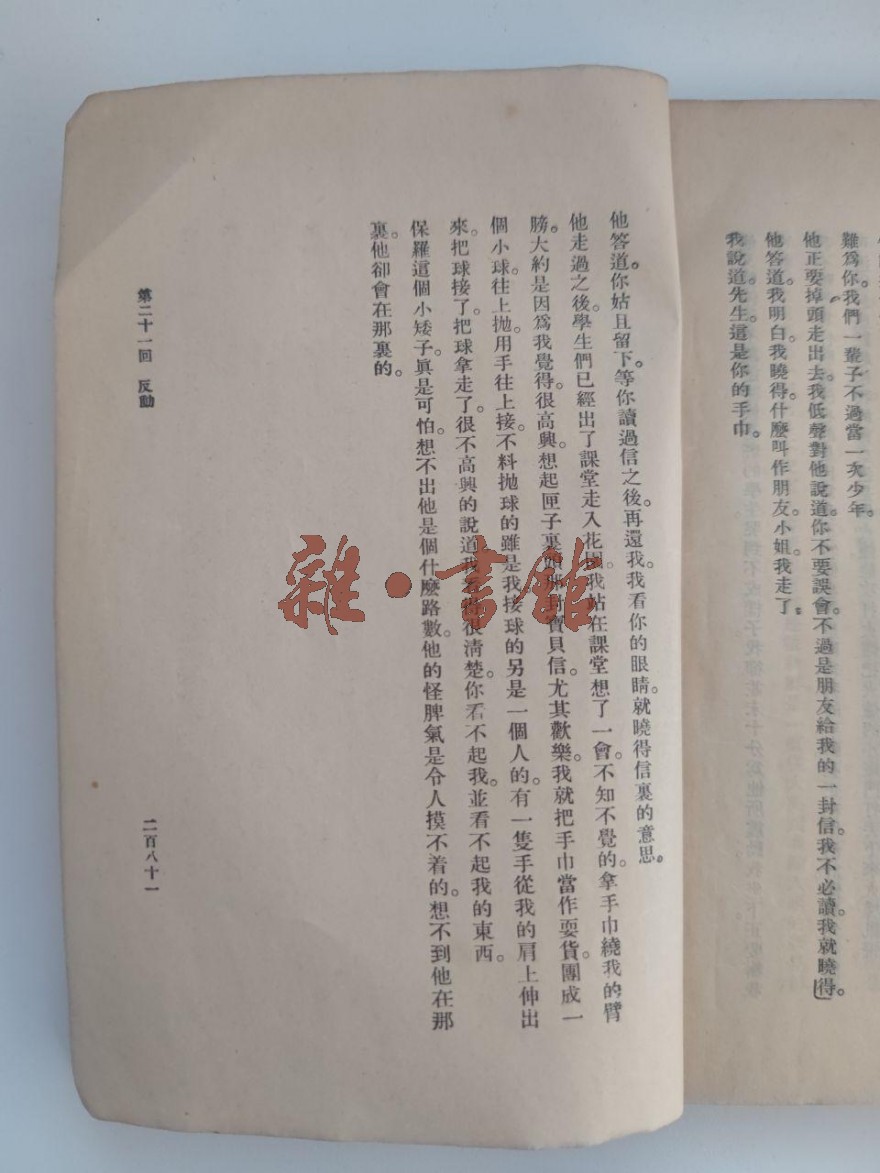 難爲你。我們一輩子不過當一次少年。
他正要掉頭走出去。我低聲對他說道。你不要誤會。不過是朋友給我的一封信。我不必讀。我就曉得。
他答道。我明白。我曉得。什麼叫作朋友。小姐。我走了。
我說道。先生。這是你的手巾。
他答道。你姑且留下。等你讀過信之後。再還我。我看你的眼睛。就曉得信裏的意思。
他走過之後。學生們已經出了課堂。走入花園。我站在課堂。想了一會。不知不覺的。拿手巾繞我的臂
膀。大約是因爲我覺得。很高興。想起匣子裏頭 封寶貝信。尤其歡樂。我就把手巾當作耍貨。團成一
個小球。往上拋。用手往上接。不料拋球的雖是我。接球的另是一個人的。有一隻手從我的肩上伸出
來。把球接了。把球拿走了。很不高興的說道。我 得很清楚。你看不起我。並看不起我的東西。
保羅這個小矮子。眞是可怕。想不出他是個什麼路數。他的怪脾氣是令人摸不着的。想不到他在那
裏。他卻會在那裏的。
第二十一回 反動
二百八十一
雜·書館